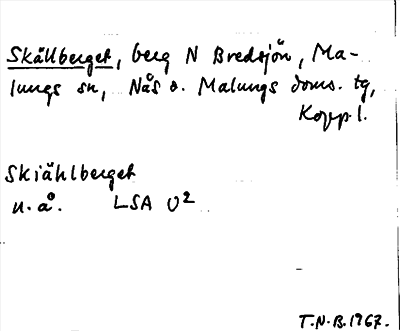 Skällberget, berg N Bredsjön, Ma-
lungs sn, Nås o. Malungs doms. tg,
Kopp. l.
Skiählberget
u. å. LSA U2
T.N.B. 1967.